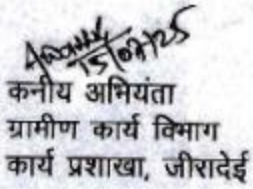 15/07/25
कनीय अभियंता
ग्रामीण कार्य विभाग
कार्य प्रशाखा, जीरादेई